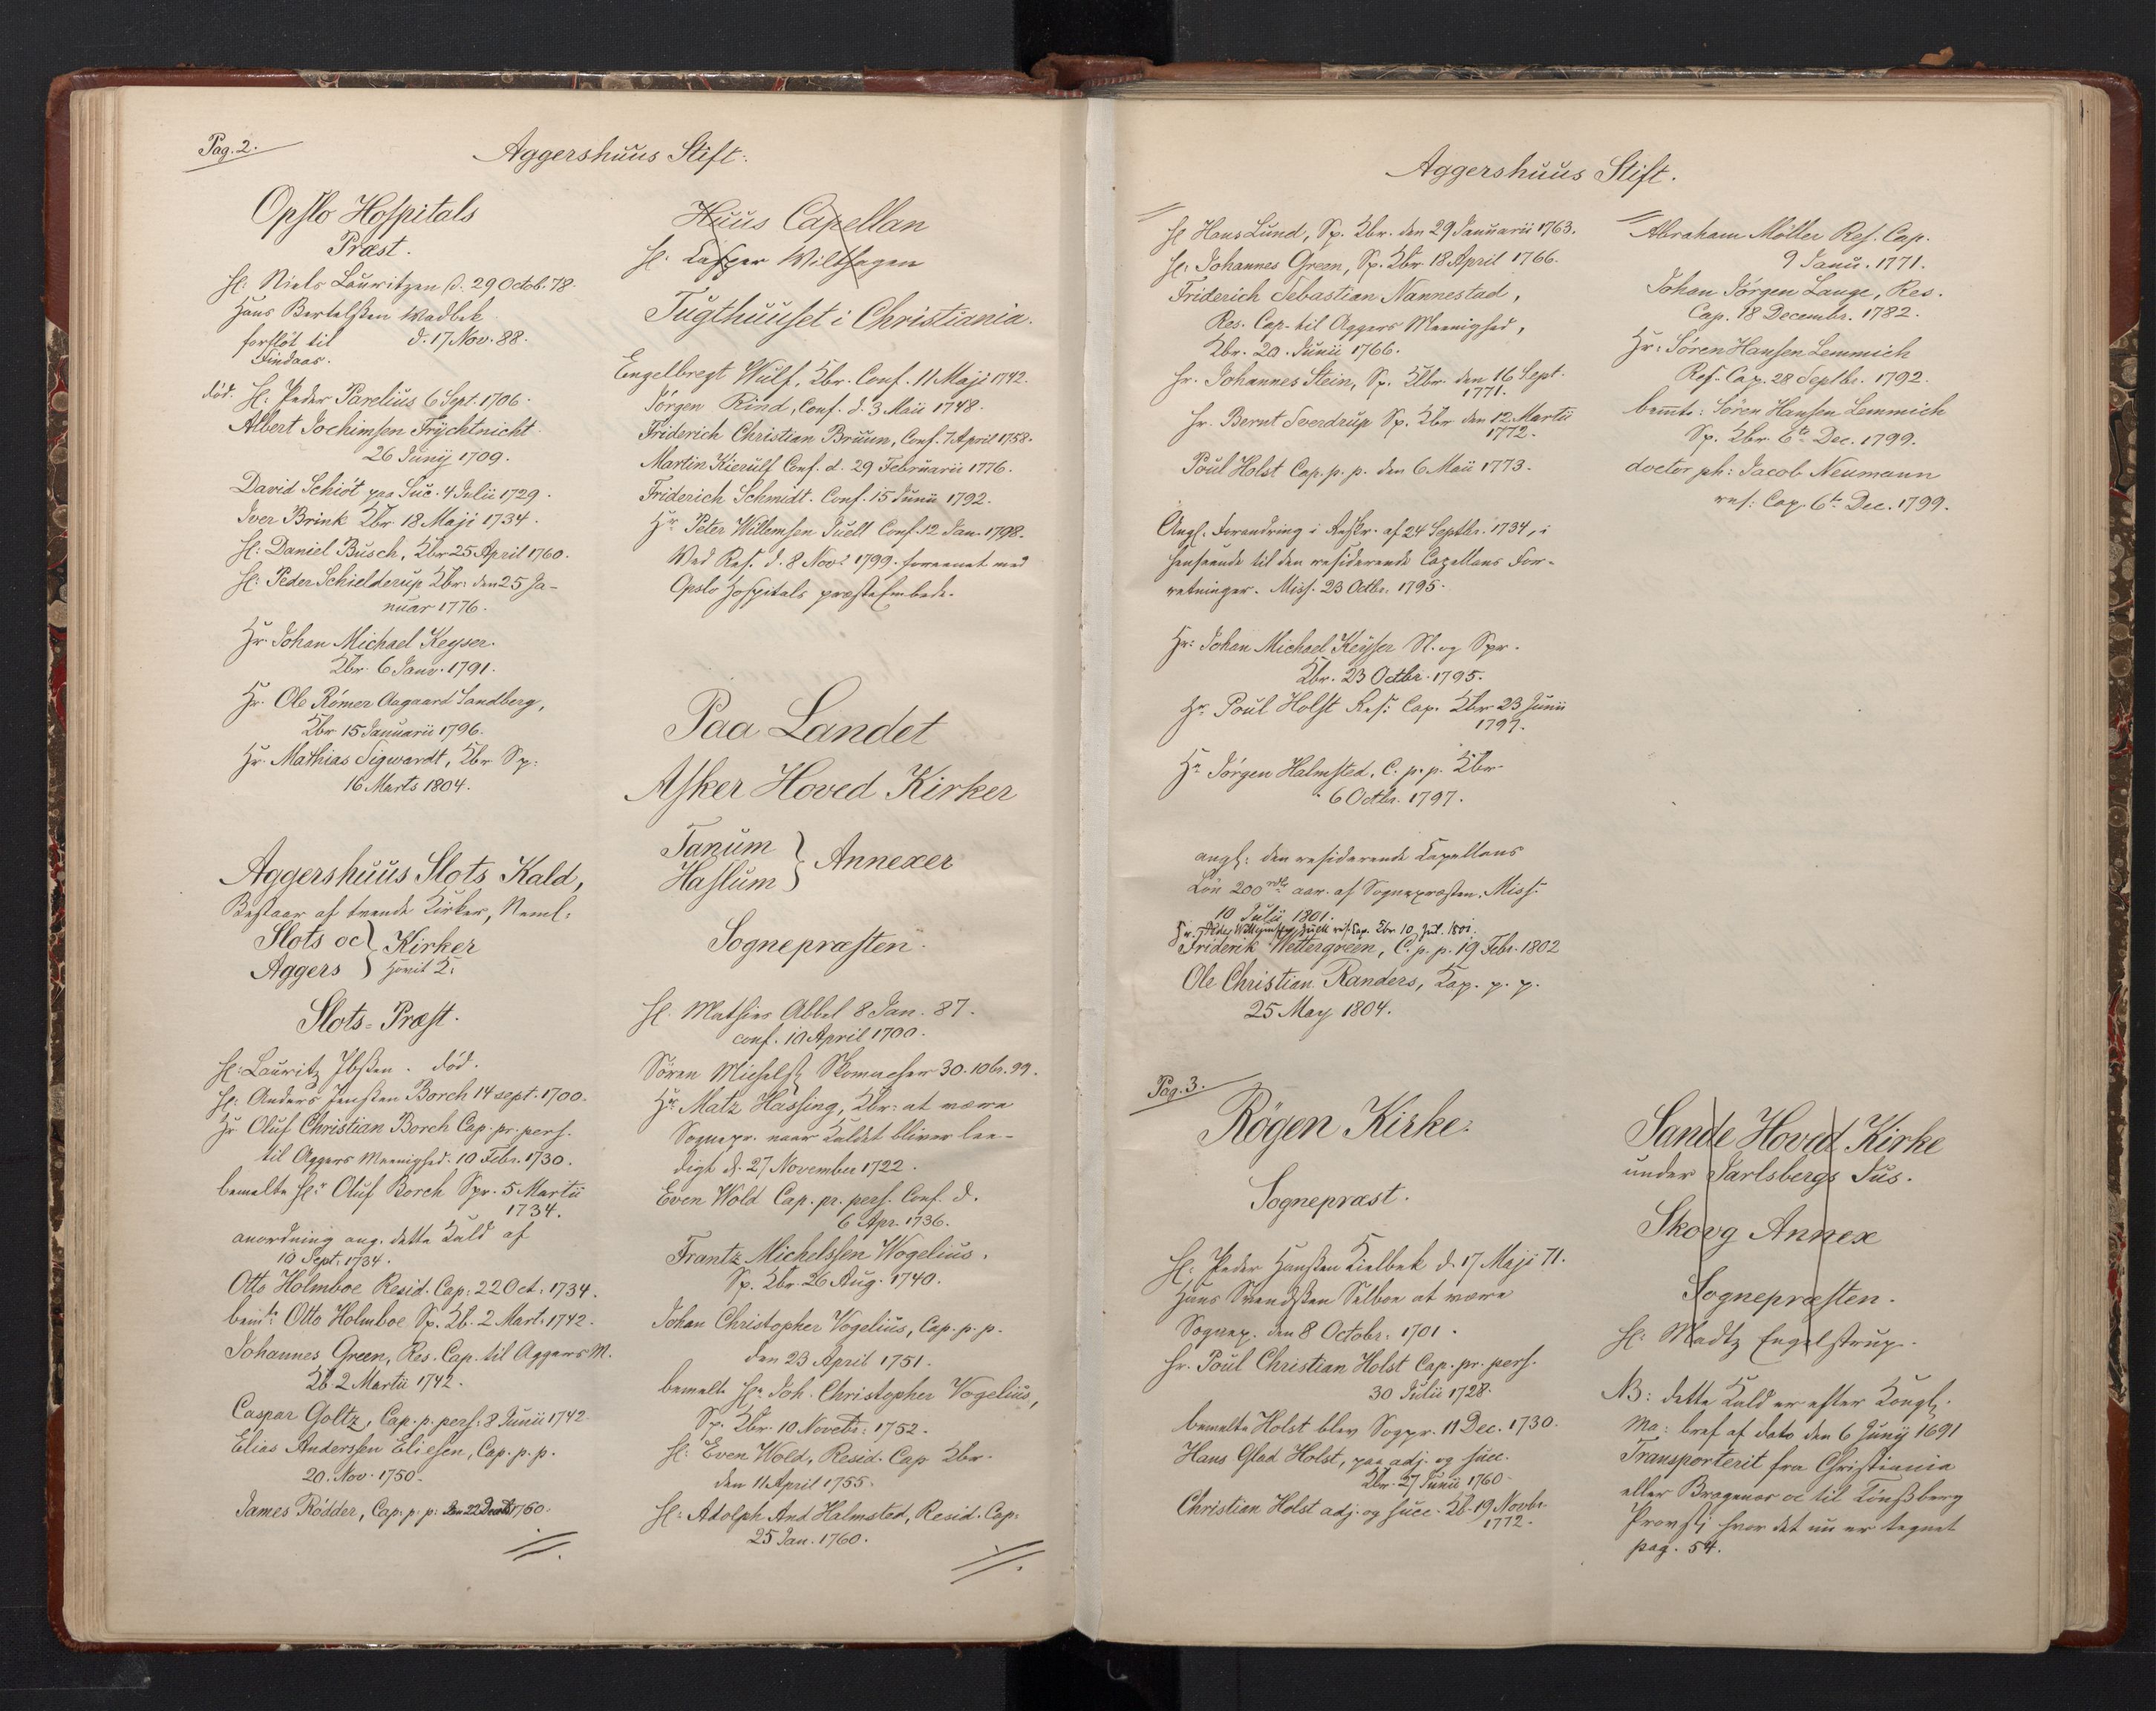 Pag. 2.
Aggershuus Stift.
Opslo Hospitals
Præst.
Hr: Niels Lauritzen d. 29 Octob. 78.
Hans Bertelsen Wadbek
forflöt til d. 17 Nov. 88.
Findaas.
död. Hr: Peder Parelius 6 Sept. 1706.
Albert Jochimsen Frÿchtnicht
26 Junij 1709.
David Schiöt paa Suc. 4 Julii 1729.
Iver Brink Kbr 18 Maji 1734.
Hr: Daniel Busch, Kbr 25 April 1760.
Hr: Peder Schielderup Kbr: den 25 Ja-
nuar 1776.
Hr. Johan Michael Keyser.
Kbr. 6 Janv. 1791.
Hr. Ole Römer Aagaard Sandberg,
Kbr 15 Januarii 1796.
Hr. Mathias Sigwardt, Kbr Sp:
16 Marts 1804.
Aggershuus Slots Kald,
Bestaar af tvende Kirker, Neml:
Slots oc } Kirker
Aggers } Hovit K.
Slots-Præst.
Hr: Lauritz Ibsen. död.
Hr: Anders Jensen Borch 14 sept. 1700.
Hr Oluf Christian Borch Cap. pr. pers.
til Aggers Meenighed. 10 Febr. 1730.
bemelte Hr Oluf Borch Spr. 5 Martii
1734.
anordning ang. dette Kald af
10 Sept. 1734.
Otto Holmboe Resid. Cap: 22 Oct. 1734.
bemte Otto Holmboe Sp. Kb. 2 Mart. 1742.
Johannes Green, Res. Cap. til Aggers M.
Kb. 2 Martii 1742.
Caspar Goltz, Cap. p. pers: 8 Junii 1742.
Elias Anderssen Eliesen, Cap. p. p.
20. Nov. 1750.
James Rödder, Cap: p. p: den 22 Decbr 1760.
//.
Huus Capellan
Hr. Casper Wilthagen
Tugthuuset i Christiania.
Engelbregt Wulf, Kbr. Conf. 11 Maji 1742.
Jörgen Rind, Conf. d. 3 Maii 1748.
Friderich Christian Bruun, Conf. 7 April 1758.
Martin Kierulf Conf. d. 29 Februarii 1776.
Friderich Schmidt. Conf. 15 Junii 1792.
Hr Peter Willemsen Juell Conf. 12 Jan. 1798.
Ved Res. d. 8 Novr 1799. foreenet med
Opslo Hospitals præste Embede.
Paa Landet
Asker Hoved Kirker
Tanum } Annexer
Haslum }
Sognepræsten.
Hr. Mathias Abbel 8 Jan. 87.
conf. 10 April 1700.
Sören Michelss Skomacher 30. 10br. 99.
Hr Matz Hassing, Kbr: at være
Sognepr. naar Kaldet bliver lee-
digt d. 27 November 1722.
Even Wold Cap. pr. pers. Conf. d.
6 Apr. 1736.
Frantz Michelssen Vogelius.
Sp. Kbr. 26 Aug. 1740.
Johan Christopher Vogelius, Cap. p. p.
den 23 April 1751.
bemelte Hr Joh. Christopher Vogelius,
Sp. Kbr. 10 Novebr: 1752.
Hr: Even Wold, Resid. Cap Kbr.
den 11 April 1755.
Hr: Adolph And Halmsted, Resid. Cap:
25 Jan. 1760.
//.
Aggershuus Stift.
//
Hr Hans Lund, Sp. Kbr. den 29 Januarii 1763.
Hr: Johannes Green, Sp. Kbr 18 April 1766.
Friderich Sebastian Nannestad,
Res. Cap. til Aggers Meenighed,
Kbr. 20. Junii 1766.
Hr. Johannes Stein, Sp. Kbr. den 16 Sept.
1771.
Hr. Bernt Sverdrup Sp. Kbr den 12 Martii
1772.
Poul Holst Cap. p. p. den 6 Maii 1773.
Angl. Forandring i Reskr. af 24 Septbr. 1734, i
henseende til den residerende Capellans For-
retninger. Miss. 23 Octbr. 1795.
Hr: Johan Michael Keyser Sl. og Spr.
Kbr. 23 Octbr. 1795.
Hr Poul Holst Res: Cap. Kbr 23 Junii
1797.
Hr Jörgen Halmsted, C. p. p. Kbr.
6 Octbr. 1797.
angl: den residerende Capellans
Lön 200 rdlr aar. af Sognepræsten. Miss.
10 Julii 1801.
Hr. Peder Willemsen Juell res. Cap. Kbr 10 Jul. 1801.
Friderik Wettergreen, C. p. p. 19 Febr. 1802
Ole Christian Randers, Kap. p. p.
25 May 1804.
//
Abraham Möller Res. Cap.
9 Janu. 1771.
Johan Jörgen Lange, Res.
Cap. 18 Decembr. 1782.
Hr: Sören Hansen Lemmich
Res. Cap. 28 Septbr. 1792.
bemte: Sören Hansen Lemmich
Sp. Kbr. 6te Dec. 1799.
doctor ph: Jacob Neumann
res: Cap. 6te Dec. 1799.
Pag. 3.
Rögen Kirke.
Sognepræst.
Hr: Peder Hansen Kielbek d. 17 Maji 71.
Hans Svendsen Selboe at være
Sognep. den 8 Octobr: 1701.
Hr. Poul Christian Holst Cap. pr. pers.
30 Julii 1728.
bemelte Holst blev Sogpr. 11 Dec. 1730.
Hans Glad Holst, paa adj. og succ.
Kbr. 27 Junii 1760.
Christian Holst adj. og succ. Kb. 19 Novbr.
1772.
Sande Hoved Kirke
under Jarlsbergs Jus.
Skovg Annex
Sognepræsten.
Hr: Madtz Engelstrup.
NB: dette Kald er efter Kongl.
Ma: bref af dato den 6 Junij 1691
Transporterit fra Christiania
eller Bragenes oc til Tönsberg
Provsti hvor det nu er tegnet
pag. 54.